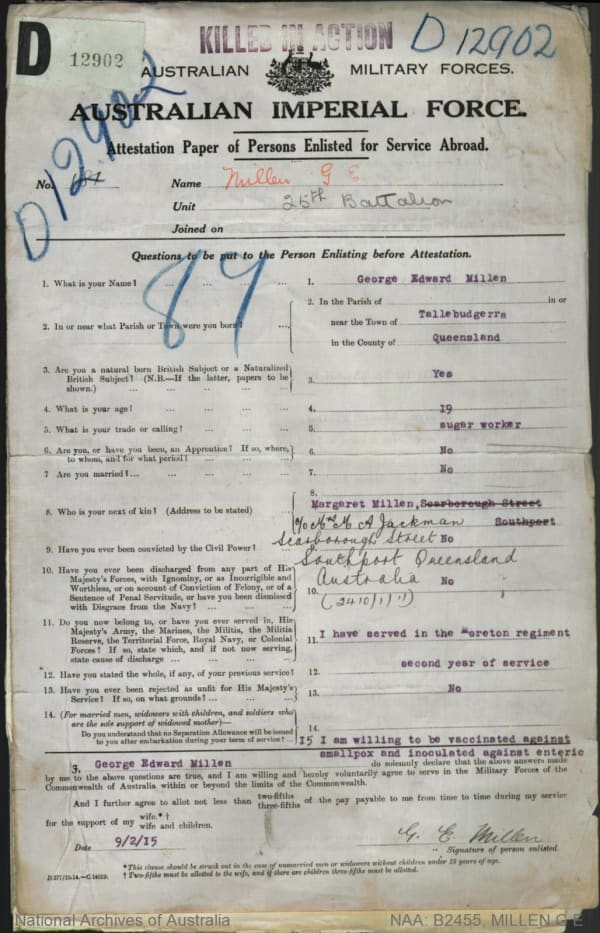 D
12902
KILLED IN ACTION
D 12902
D 12902
AUSTRALIAN MILITARY FORCES.
AUSTRALIAN IMPERIAL FORCE.
Attestation Paper of Persons Enlisted for Service Abroad.
No. Name Millen G E
Unit 25th Battalion
Joined on
Questions to be put to the Person Enlisting before Attestation.
1. What is your Name? ... ... ... ... 1. George Edward Millen
2. In or near what Parish or Town were you born? ... 2. In the Parish of in or
near the Town of Tallebudgerra
in the County of Queensland
3. Are you a natural born British Subject or a Naturalized
British Subject? (N.B.—If the latter, papers to be
shown.) ... ... ... ... 3. Yes
4. What is your age? ... ... ... ... 4. 19
5. What is your trade or calling? ... ... ... 5. sugar worker
6. Are you, or have you been, an Apprentice? If so, where,
to whom, and for what period? ... ... ... 6. No
7 Are you married? ... ... ... ... 7. No
8. Who is your next of kin? (Address to be stated) ... 8.
Margaret Millen, Scarborough Street
Southport
c/o Mrs M A Jackman
Scarborough Street
Southport Queensland
Australia
9. Have you ever been convicted by the Civil Power? ... No
10. Have you ever been discharged from any part of His
Majesty's Forces, with Ignominy, or as Incorrigible and
Worthless, or on account of Conviction of Felony, or of a
Sentence of Penal Servitude, or have you been dismissed
with Disgrace from the Navy? ... ... 10. No
11. Do you now belong to, or have you ever served in, His
Majesty's Army, the Marines, the Militia, the Militia
Reserve, the Territorial Force, Royal Navy, or Colonial
Forces? If so, state which, and if not now serving,
state cause of discharge ... ... ... 11. I have served in the Moreton regiment
second year of service
12. Have you stated the whole, if any, of your previous service? 12.
13. Have you ever been rejected as unfit for His Majesty's
Service? If so, on what grounds? ... ... 13. No
14. (For married men, widowers with children, and soldiers who
are the sole support of widowed mother)—
Do you understand that no Separation Allowance will be issued
to you after embarkation during your term of service? ... 14.
15 I am willing to be vaccinated against
smallpox and inoculated against enteric
I, George Edward Millen do solemnly declare that the above answers made
by me to the above questions are true, and I am willing and hereby voluntarily agree to serve in the Military Forces of the
Commonwealth of Australia within or beyond the limits of the Commonwealth.
And I further agree to allot not less than two-fifths three-fifths of the pay payable to me from time to time during my service
for the support of my wife.* † wife and children.
Date 9/2/15 G. E. Millen
Signature of person enlisted.
* This clause should be struck out in the case of unmarried men or widowers without children under 18 years of age.
† Two-fifths must be allotted to the wife, and if there are children three-fifths must be allotted.
National Archives of Australia NAA: B2455, MILLEN G E